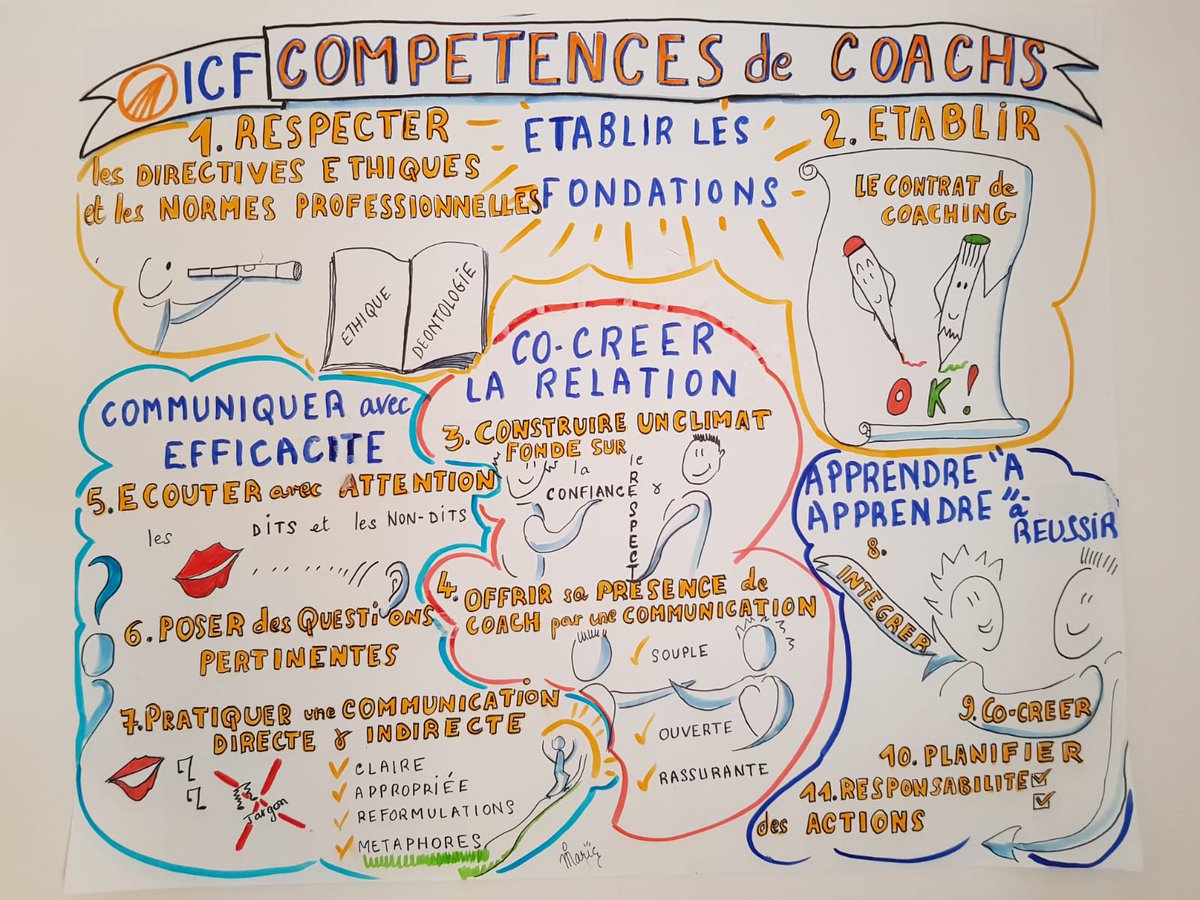 ICF COMPETENCES de COACHS
ETABLIR LES
FONDATIONS
1. RESPECTER
les DIRECTIVES ETHIQUES
et les NORMES PROFESSIONNELLES
ETHIQUE
DEONTOLOGIE
2. ETABLIR
LE CONTRAT de
COACHING
OK!
CO-CREER
LA RELATION
3. CONSTRUIRE UN CLIMAT
FONDE SUR
la
CONFIANCE &
le RESPECT
4. OFFRIR sa PRESENCE de
COACH par une COMMUNICATION
SOUPLE
OUVERTE
RASSURANTE
COMMUNIQUER avec
EFFICACITE
5. ECOUTER avec ATTENTION
les DITS et les NON-DITS
6. POSER des QUESTIONS
PERTINENTES
7. PRATIQUER une COMMUNICATION
DIRECTE & INDIRECTE
Jargon
CLAIRE
APPROPRIÉE
REFORMULATIONS
METAPHORES
APPRENDRE "A
APPRENDRE" à
REUSSIR
8.
INTEGRER
9. CO-CREER
10. PLANIFIER
11. RESPONSABILITE
des ACTIONS